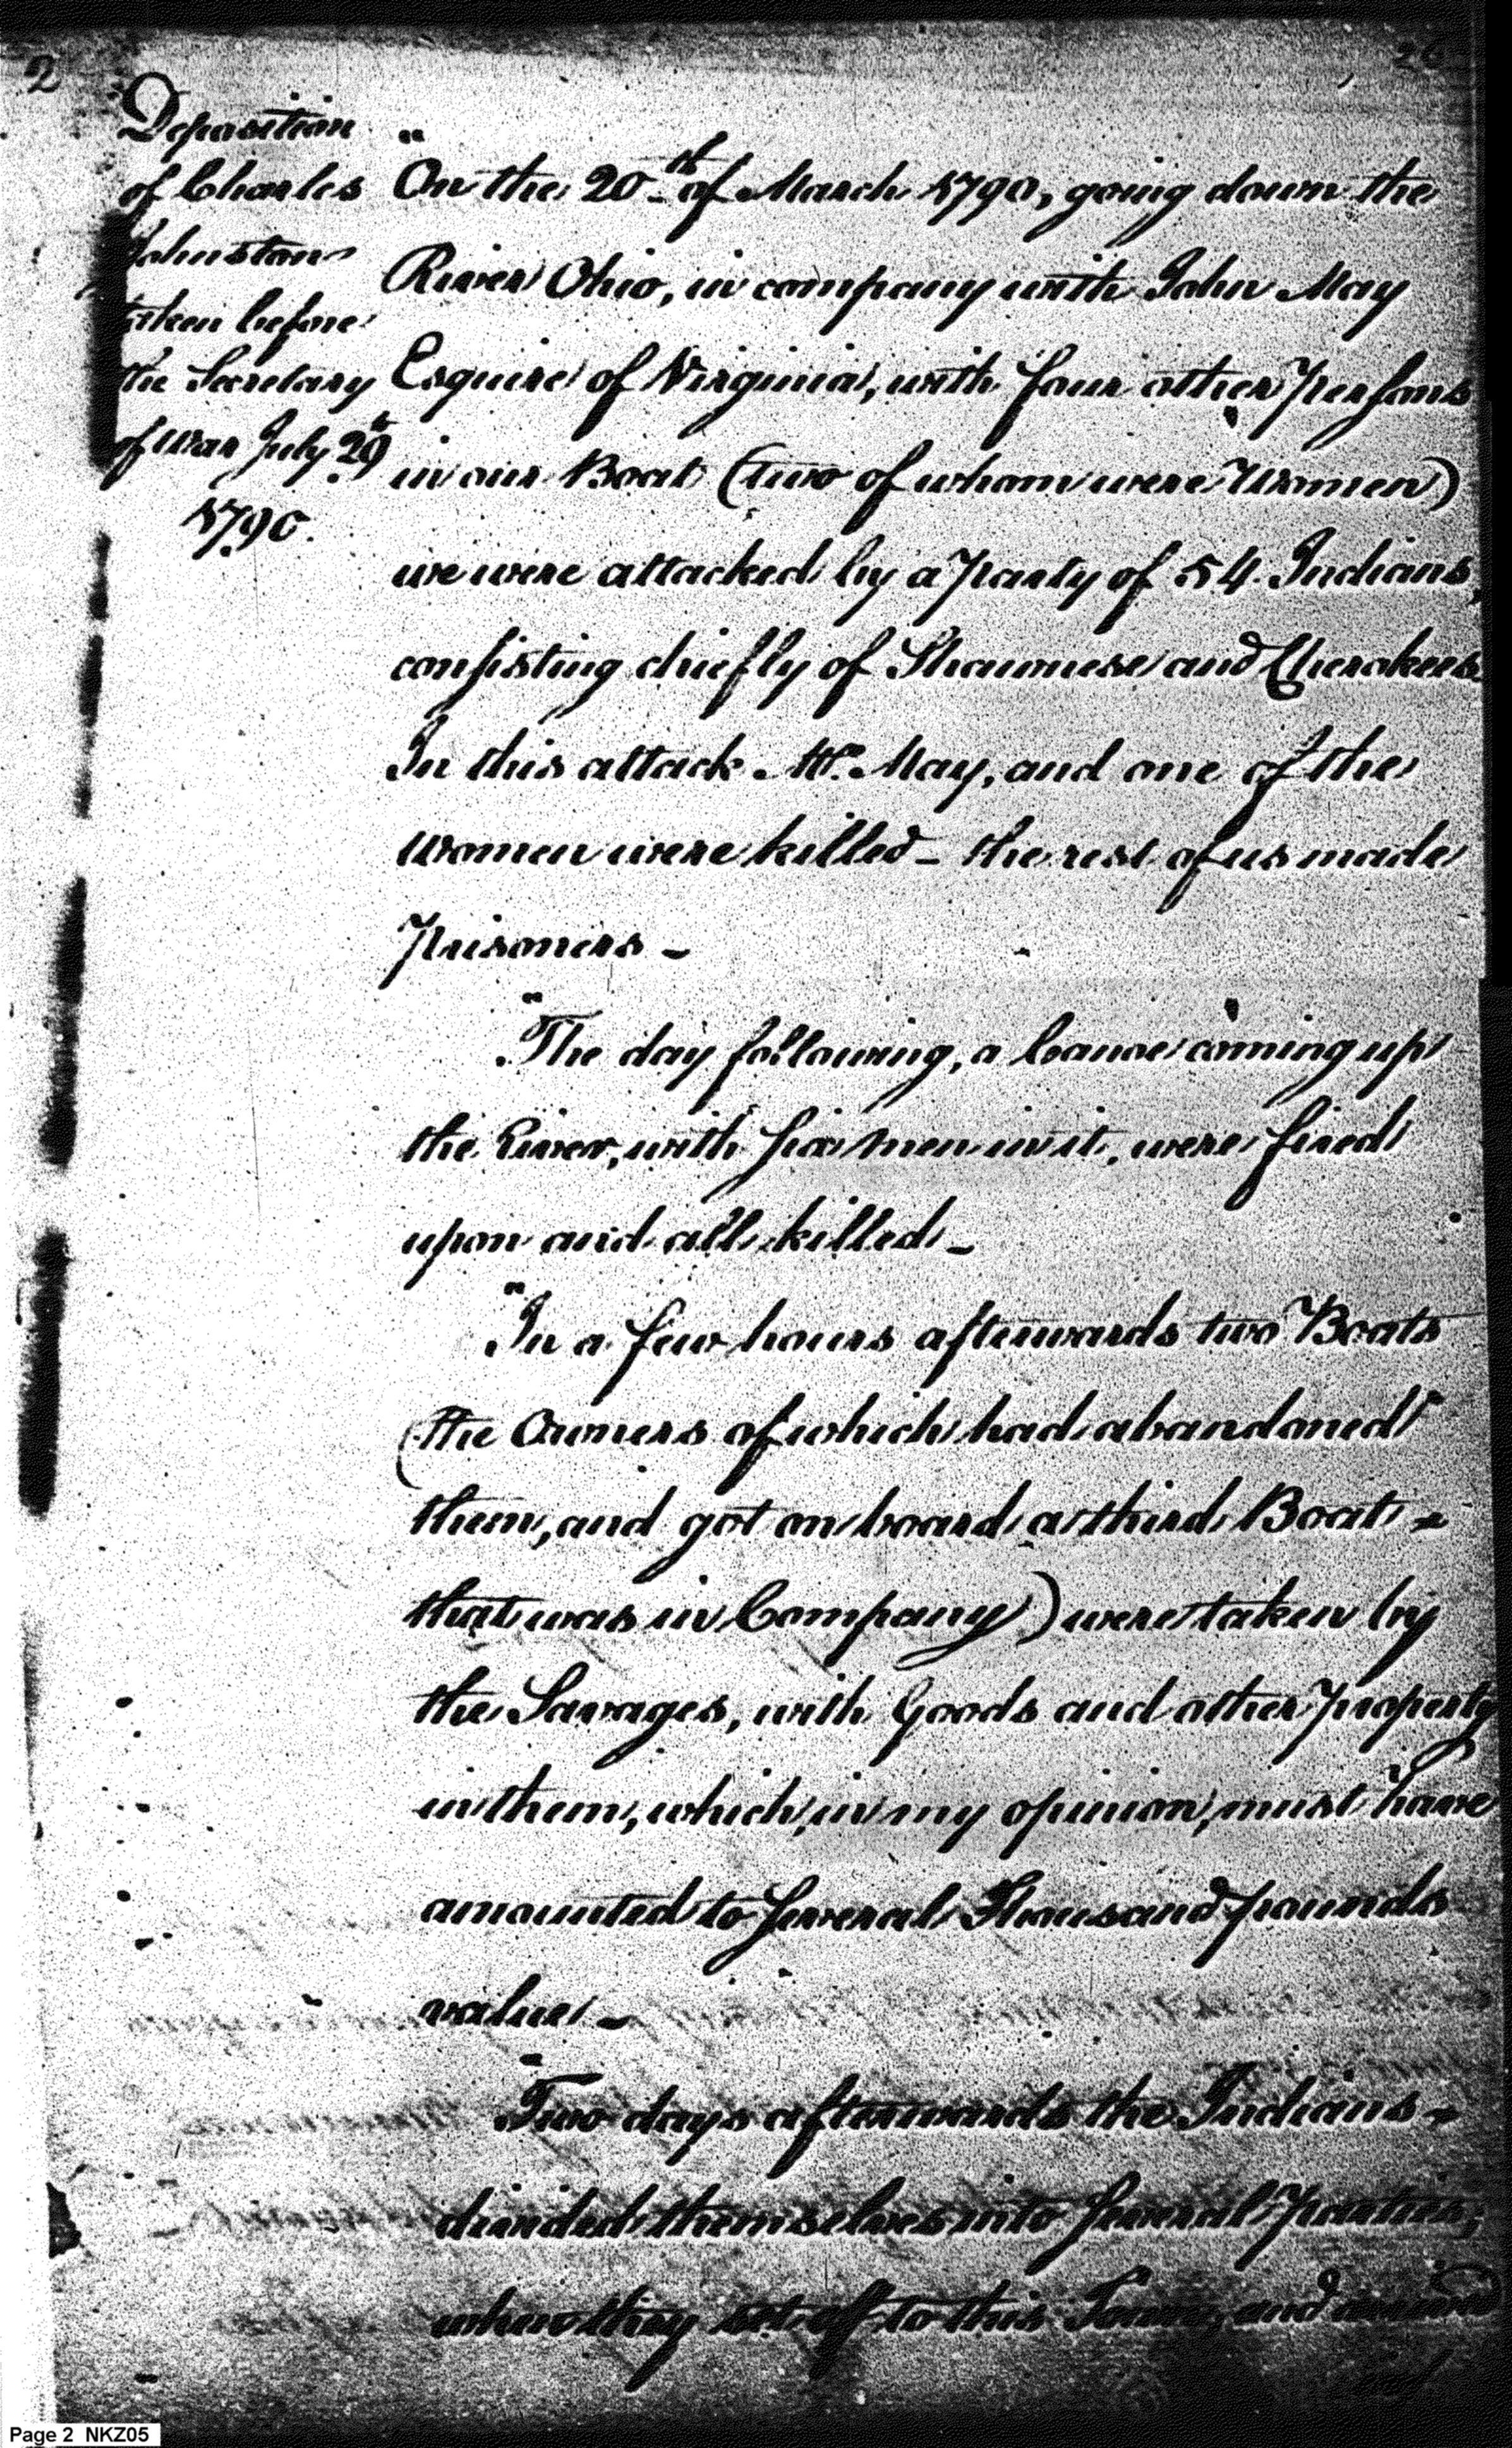 2
26
Deposition
of Charles
Johnston
taken before
the Secretary
of War July 29th
1790.
"On the 20th of March 1790, going down the
River Ohio, in company with John May
Esquire of Virginia, with four other Persons
in our Boat (two of whom were Women)
we were attacked by a Party of 54 Indians,
consisting chiefly of Shawnese and Cherokees.
In this attack Mr. May, and one of the
Women were killed – the rest of us made
Prisoners –
"The day following, a Canoe coming up
the River, with six men in it, were fired
upon and all killed –
"In a few hours afterwards two Boats
(the Owners of which had abandoned
them, and got on board a third Boat –
that was in Company) were taken by
the Savages, with Goods and other Property
in them, which, in my opinion, must have
amounted to several Thousand pounds
value –
"Two days afterwards the Indians –
divided themselves into several Parties,
when they set off to this Towns, and
Page 2 NKZ05